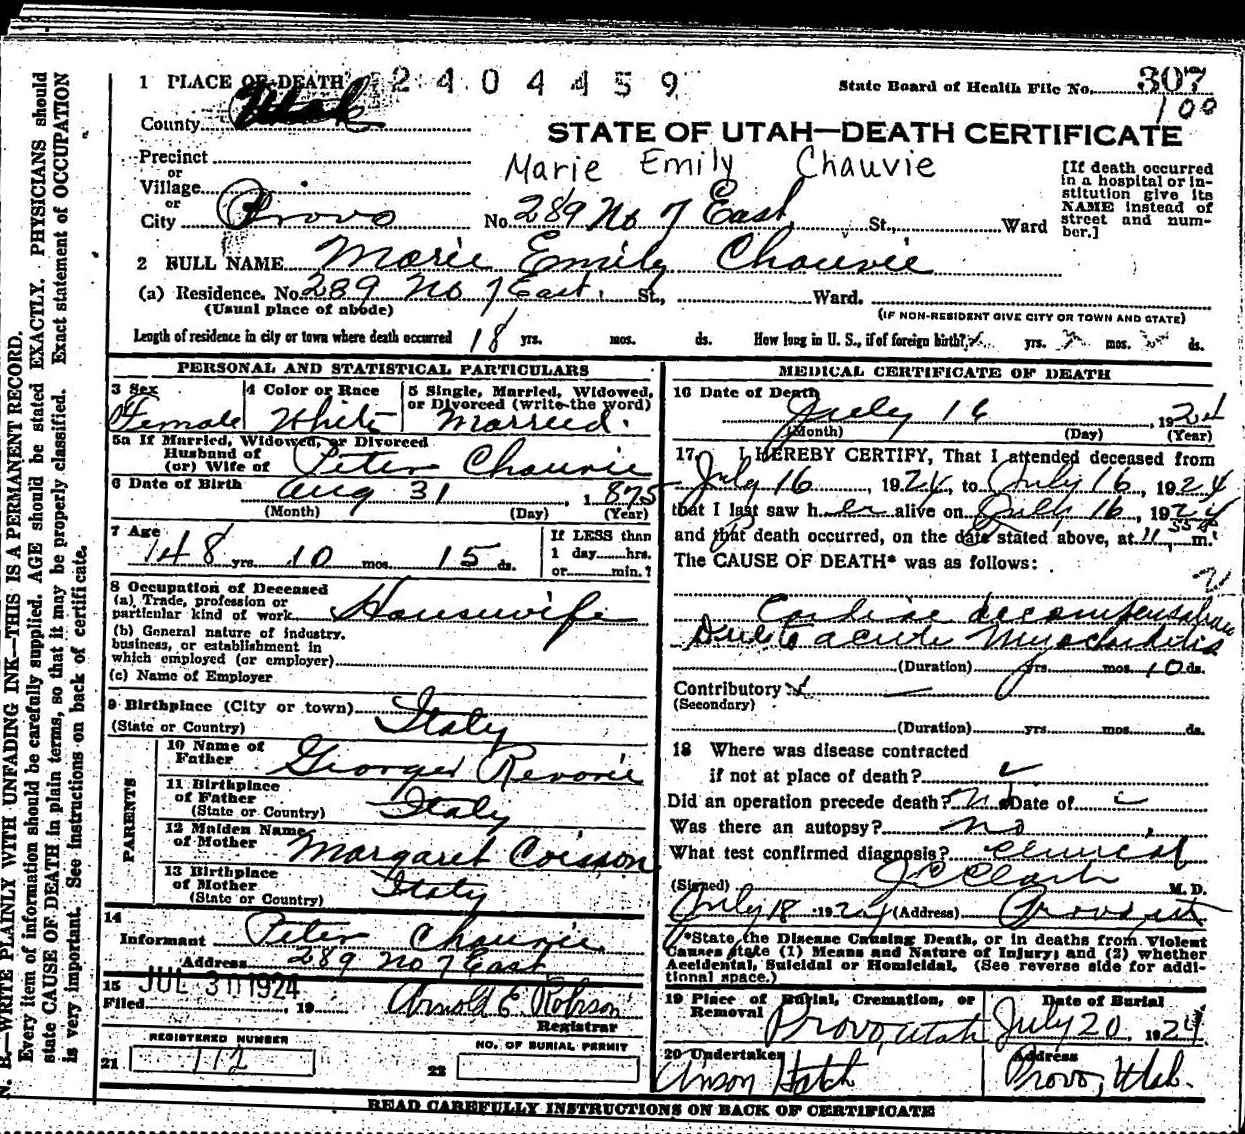 1 PLACE OF DEATH 2404459
State Board of Health File No. 307
100
County Utah
STATE OF UTAH—DEATH CERTIFICATE
Marie Emily Chauvie
Precinct
or
Village
or
City Provo No. 289 No 7 East St., Ward
[If death occurred in a hospital or institution give its NAME instead of street and number.]
2 FULL NAME Marie Emily Chauvie
(a) Residence. No. 289 No 7 East. St., Ward.
(Usual place of abode) (IF NON-RESIDENT GIVE CITY OR TOWN AND STATE)
Length of residence in city or town where death occurred 18 yrs. mos. ds. How long in U. S., if of foreign birth? yrs. mos. ds.
PERSONAL AND STATISTICAL PARTICULARS
3 Sex Female
4 Color or Race White
5 Single, Married, Widowed, or Divorced (write the word) Married.
5a If Married, Widowed, or Divorced
Husband of
(or) Wife of Peter Chauvie
6 Date of Birth Aug 31, 1875
(Month) (Day) (Year)
7 Age 48 yrs. 10 mos. 15 ds.
If LESS than
1 day......hrs.
or......min.?
8 Occupation of Deceased
(a) Trade, profession or
particular kind of work Housewife
(b) General nature of industry.
business, or establishment in
which employed (or employer)
(c) Name of Employer
9 Birthplace (City or town) Italy
(State or Country)
PARENTS
10 Name of
Father George Revoir
11 Birthplace
of Father Italy
(State or Country)
12 Maiden Name
of Mother Margaret Coisson
13 Birthplace
of Mother Italy
(State or Country)
14
Informant Peter Chauvie
Address 289 No 7 East
15 JUL 31 1924
Filed, 19 Arnold E Robison
Registrar
REGISTERED NUMBER
21 112
NO. OF BURIAL PERMIT
22
MEDICAL CERTIFICATE OF DEATH
16 Date of Death
July 16, 1924
(Month) (Day) (Year)
17 I HEREBY CERTIFY, That I attended deceased from
July 16, 1924, to July 16, 1924
that I last saw her alive on July 16, 1924
and that death occurred, on the date stated above, at 11 55 P m.
The CAUSE OF DEATH* was as follows:
Cardiac decompensation
Due to acute Myocarditis
(Duration) yrs. mos. 10 ds.
Contributory
(Secondary)
(Duration) yrs. mos. ds.
18 Where was disease contracted
if not at place of death?
Did an operation precede death? No Date of
Was there an autopsy? no
What test confirmed diagnosis? clinical
(Signed) J C Clark M. D.
July 18 1924 (Address) Provo, Ut
*State the Disease Causing Death, or in deaths from Violent
Causes state (1) Means and Nature of Injury; and (2) whether
Accidental, Suicidal or Homicidal. (See reverse side for addi-
tional space.)
19 Place of Burial, Cremation, or
Removal Provo, Utah
Date of Burial
July 20, 1924
20 Undertaker
Anson Hatch
Address
Provo, Utah.
READ CAREFULLY INSTRUCTIONS ON BACK OF CERTIFICATE
N. B.—WRITE PLAINLY WITH UNFADING INK—THIS IS A PERMANENT RECORD.
Every item of information should be carefully supplied. AGE should be stated EXACTLY. PHYSICIANS should
state CAUSE OF DEATH in plain terms, so that it may be properly classified. Exact statement of OCCUPATION
is very important. See instructions on back of certificate.